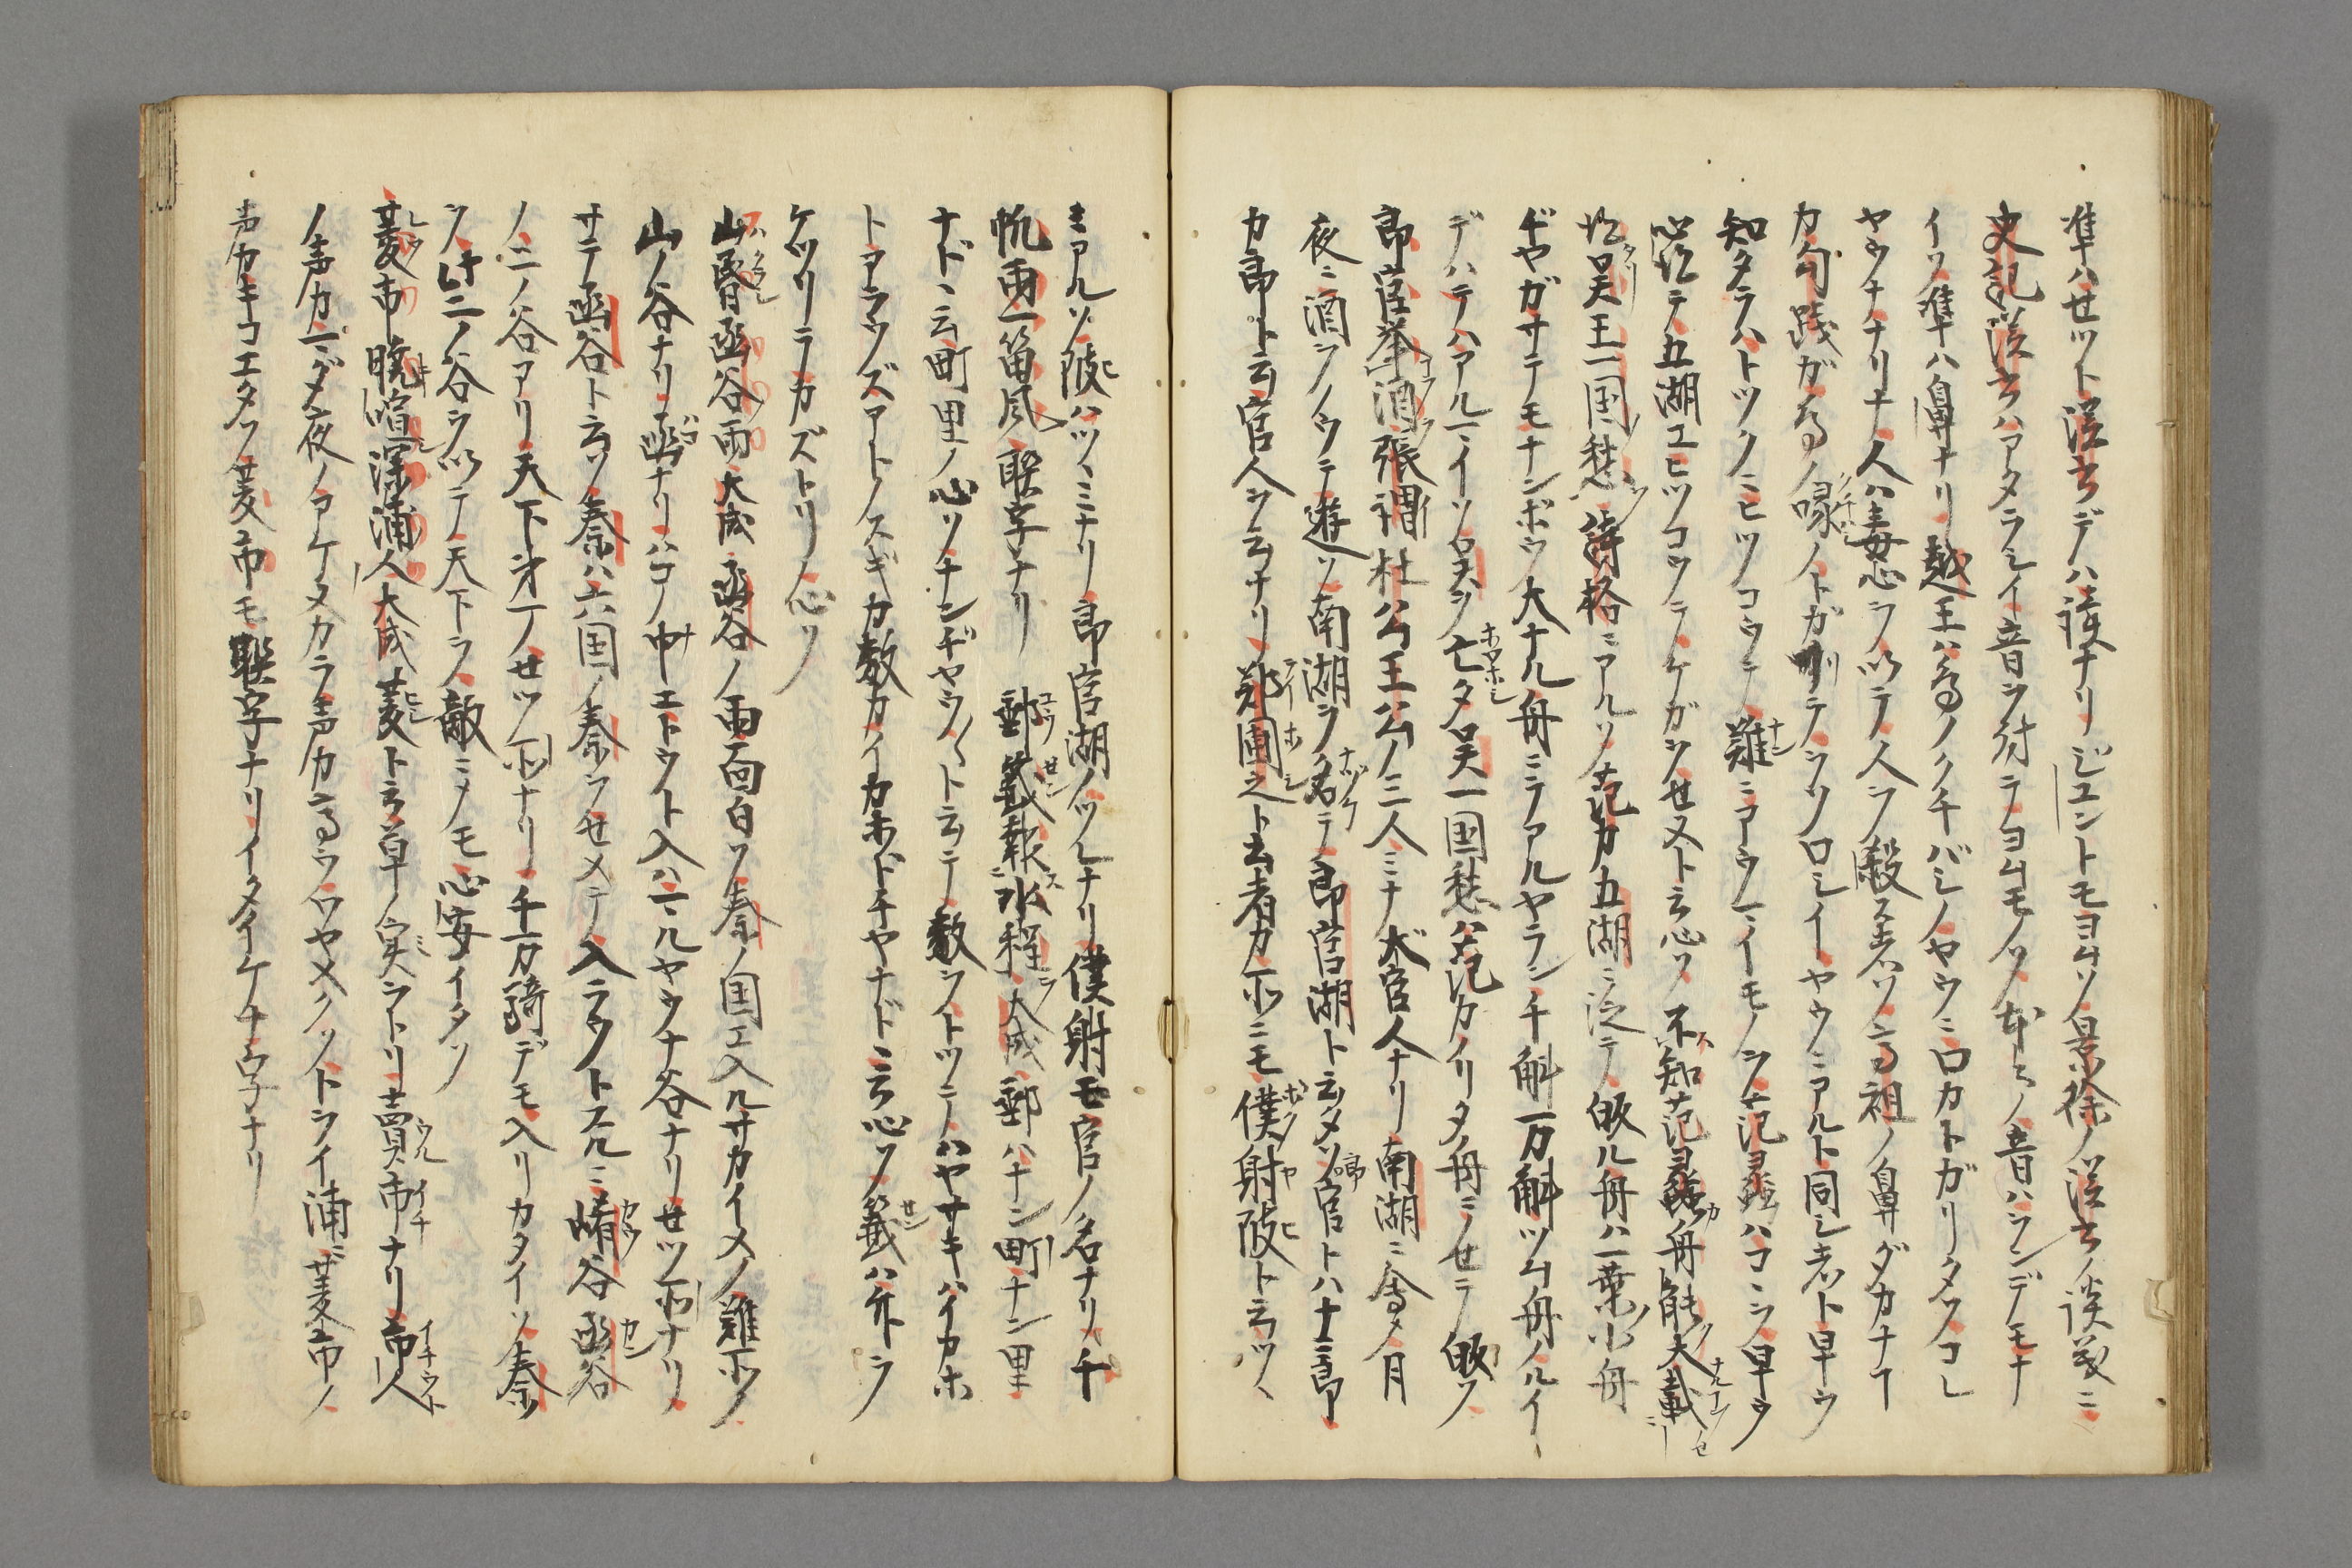 準ハセツト漢書デハ読ナリジユントモヨムソ景徐ノ漢書ノ談義ニ
史記漢書ハアタラシイ音ヲ付テヨムモノソ本〻ノ音ハランデモナ
イソ準ハ鼻ナリ越王ハ鳥ノクチバシノヤウニ口カトガリタソコレ
ヤウナナリナ人ハ毒心ヲ以テ人ヲ殺ス者ソ高祖ノ鼻ダカナヿ
カ句践ガ鳥ノ喙ノトガ리テヲソロシイヤウニアルト同シ者ト早ウ
知タラハトツクニヒツコウテ難ニアウマイモノヲ范蠡ハコヽヲ早ウ
心得テ五湖エヒツコウテケガヲせヌト云心ソ不知范蠡舟能大載
得呉王一国愁詩格ニアルソ范カ五湖ニ泛テ皈ル舟ハ一葉ノ小舟
ヂヤガサテモナンボウ大ナル舟ニテアルヤラン千斛一万斛ツム舟ノルイ
デハテハアルマイソ呉ヲ亡タ呉一国愁ハ范カノリタ舟ニノせテ皈ソ
郎官挙酒張謂杜公王公ノ三人ミナ大官人ナリ南湖ニ会メ月
夜ニ酒ヲノウテ遊ソ南湖ヲ名テ郎官湖ト云タソ郎官トハ十二郎
カ郎ト云官人ヲ云ナリ鄭圃之ト云者カ所ニモ僕射陂ト云ツヽ
ミアルソ陂ハツヽミナリ郎官湖ノツレナリ僕射モ官ノ名ナリ千
帆雨一笛風聯字ナリ　郵籤報水程大成郵ハナン町ナン里
ナドヽ云町里ノ心ソナンヂヤウ〱ト云テ数ヲトツテハヤサキハイカホ
トアラウズアトノスギカ数カイカホドヂヤナドヽ云心ソ籤ハ竹ヲ
ケツリテカズトリノ心ソ
山昏函谷雨大成函谷ノ雨面白ソ秦ノ国エ入ルサカイメノ難所タ
山ノ谷ナリ函ナリハコノ中エトウト入ハマルヤウナ谷ナリせツ所ナリ
サテ函谷ト云ソ秦ハ六国ノ秦ヲせメテ入ラウトスルニ崤谷函谷
ノ二ノ谷アリ天下才一ノせツ所ナリ千万騎デモ入リカタイソ秦
ヲ此二ノ谷ヲ以テ天下ヲ敵ニメモ心安イタソ
菱市暁喧深浦人大成菱ト云草ノ実ヲトリ売市ナリ市人
ノ声カマダ夜ノアケヌカラ声カ高ウロヤメクソトヲイ浦ニ菱市ノ
声カキコエタソ菱市モ聯字ナリイタイケナ字ナリ